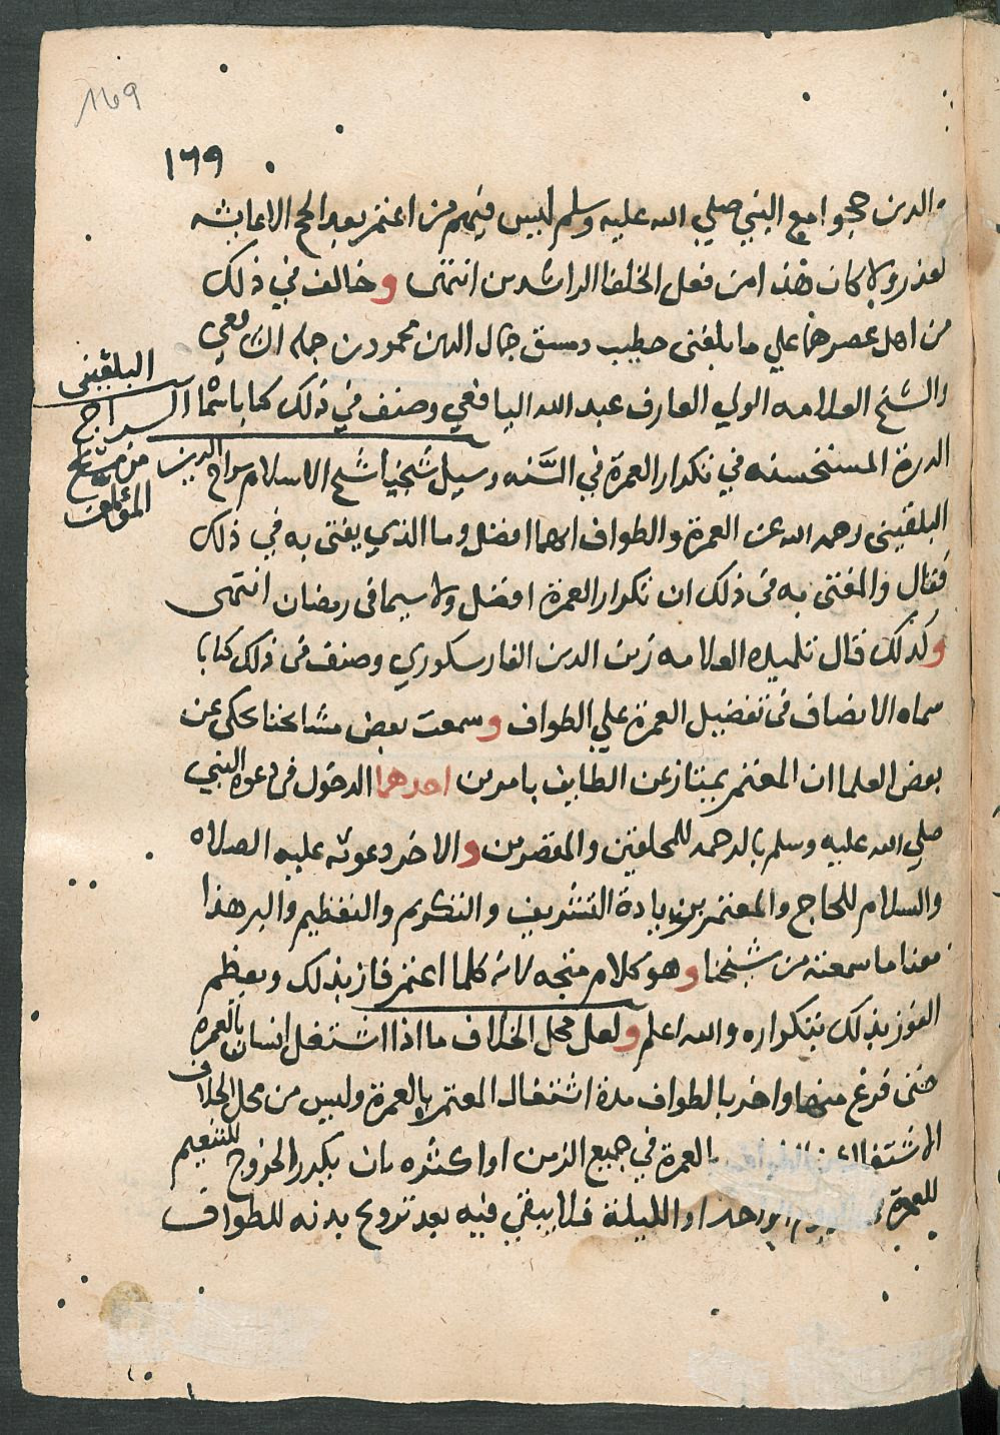 169
١٦٩
والذين حجوا مع النبي صلي الله عليه وسلم ليس فيهم من اعتمر بعد الحج الا عايشه
لعذر ولا كان هذا من فعل الخلفا الراشدين انتهى وخالف في ذلك
من اهل عصرهما علي ما بلغنى خطيب دمشق جمال الدين محمود بن جمله الشافعي
والشيخ العلامه الولي العارف عبد الله اليافعي وصنف في ذلك كتابا سماه
الدرة المستحسنه في تكرار العمرة في السَّنه وسيل شيخنا شيخ الاسلام سراج الدين
البلقينى رحمه الله عن العمرة والطواف ايهما افضل وما الذي يفتى به في ذلك
فقال والمفتى به فى ذلك ان تكرار العمرة افضل ولا سيما فى رمضان انتهى
وكذلك قال تلميذه العلامه زين الدين الفارسكوري وصنف فى ذلك كتابا
سماه الانصاف فى تفضيل العمرة علي الطواف وسمعت بعض مشايخنا يحكى عن
بعض العلما ان المعتمر يمتاز عن الطايف بامرين احدهما الدخول فى دعوة النبي
صلي الله عليه وسلم بالرحمه للمحلقين والمقصرين والاخر دعوته عليه الصلاه
والسلام للحاج والمعتمرين بزيادة التشريف والتكريم والتعظيم والبر هذا
معنا ما سمعته من شيخنا وهو كلام متجه لانه كلما اعتمر فاز بذلك ويعظم
الفوز بذلك بتكراره والله اعلم ولعل محل الخلاف ما اذا اشتغل انسان بالعمرة
حتى فرغ منها واخر بالطواف مدة اشتغال المعتمر بالعمرة وليس من محل الخلاف
الاشتغال بالعمرة في جميع الزمن او اكثره بان يكرر الخروج للتنعيم
للعمرة واحد او الليلة فلا يبقي فيه بعد ترويح بدنه للطواف
البلقينى
السراج
من مشايخ
المؤلف